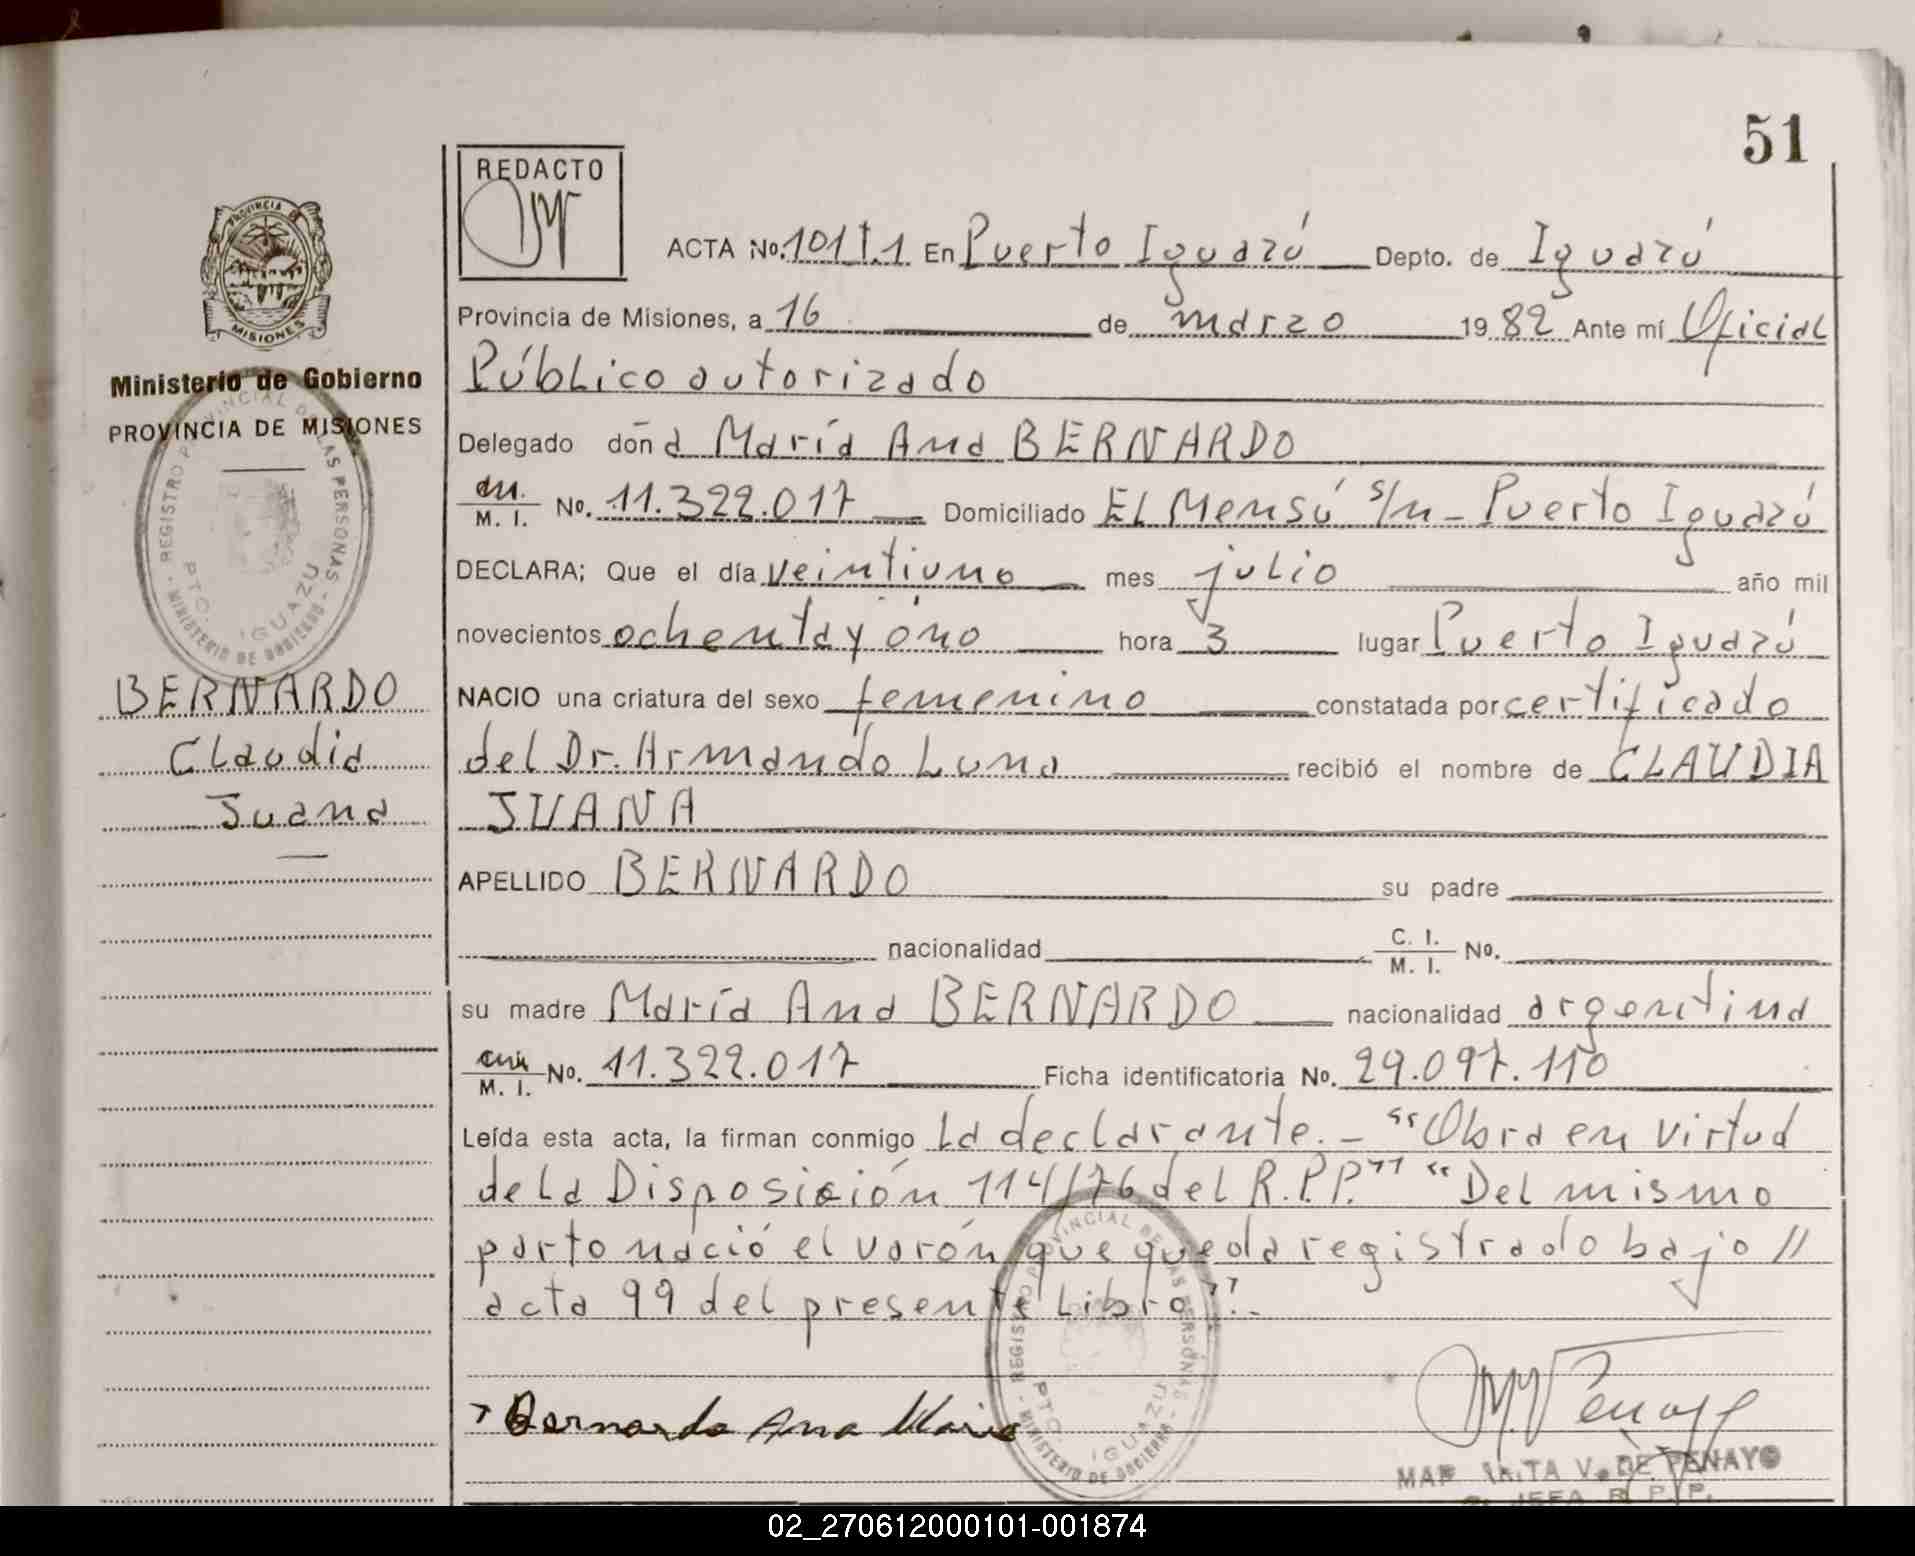 51
REDACTO
ACTA No. 101 T.1 En Puerto Iguazú Depto. de Iguazú
Provincia de Misiones, a 16 de marzo 1982 Ante mí Oficial
Público autorizado
Delegado doña María Ana BERNARDO
M. I. No. 11.322.017 Domiciliado El Mensú s/n - Puerto Iguazú
DECLARA; Que el día veintiuno mes julio año mil
novecientos ochenta y úno hora 3 lugar Puerto Iguazú
NACIO una criatura del sexo femenino constatada por certificado
del Dr. Armando Luna recibió el nombre de CLAUDIA
JUANA
APELLIDO BERNARDO su padre
nacionalidad C. I. M. I. No.
su madre María Ana BERNARDO nacionalidad argentina
M. I. No. 11.322.017 Ficha identificatoria No. 29.097.110
Leída esta acta, la firman conmigo la declarante. - "Obra en virtud
de la Disposición 114/76 del R.P.P." "Del mismo
parto nació el varón que queda registrado bajo //
acta 99 del presente Libro".-
Bernardo Ana Maria
V. DE PENAYO
JEFA R. P. P.
PROVINCIA DE
MISIONES
Ministerio de Gobierno
PROVINCIA DE MISIONES
REGISTRO PROVINCIAL DE LAS PERSONAS
PTO. IGUAZU
MINISTERIO DE GOBIERNO
BERNARDO
Claudia
Juana
REGISTRO PROVINCIAL DE LAS PERSONAS
PTO. IGUAZU
MINISTERIO DE GOBIERNO
02_270612000101-001874